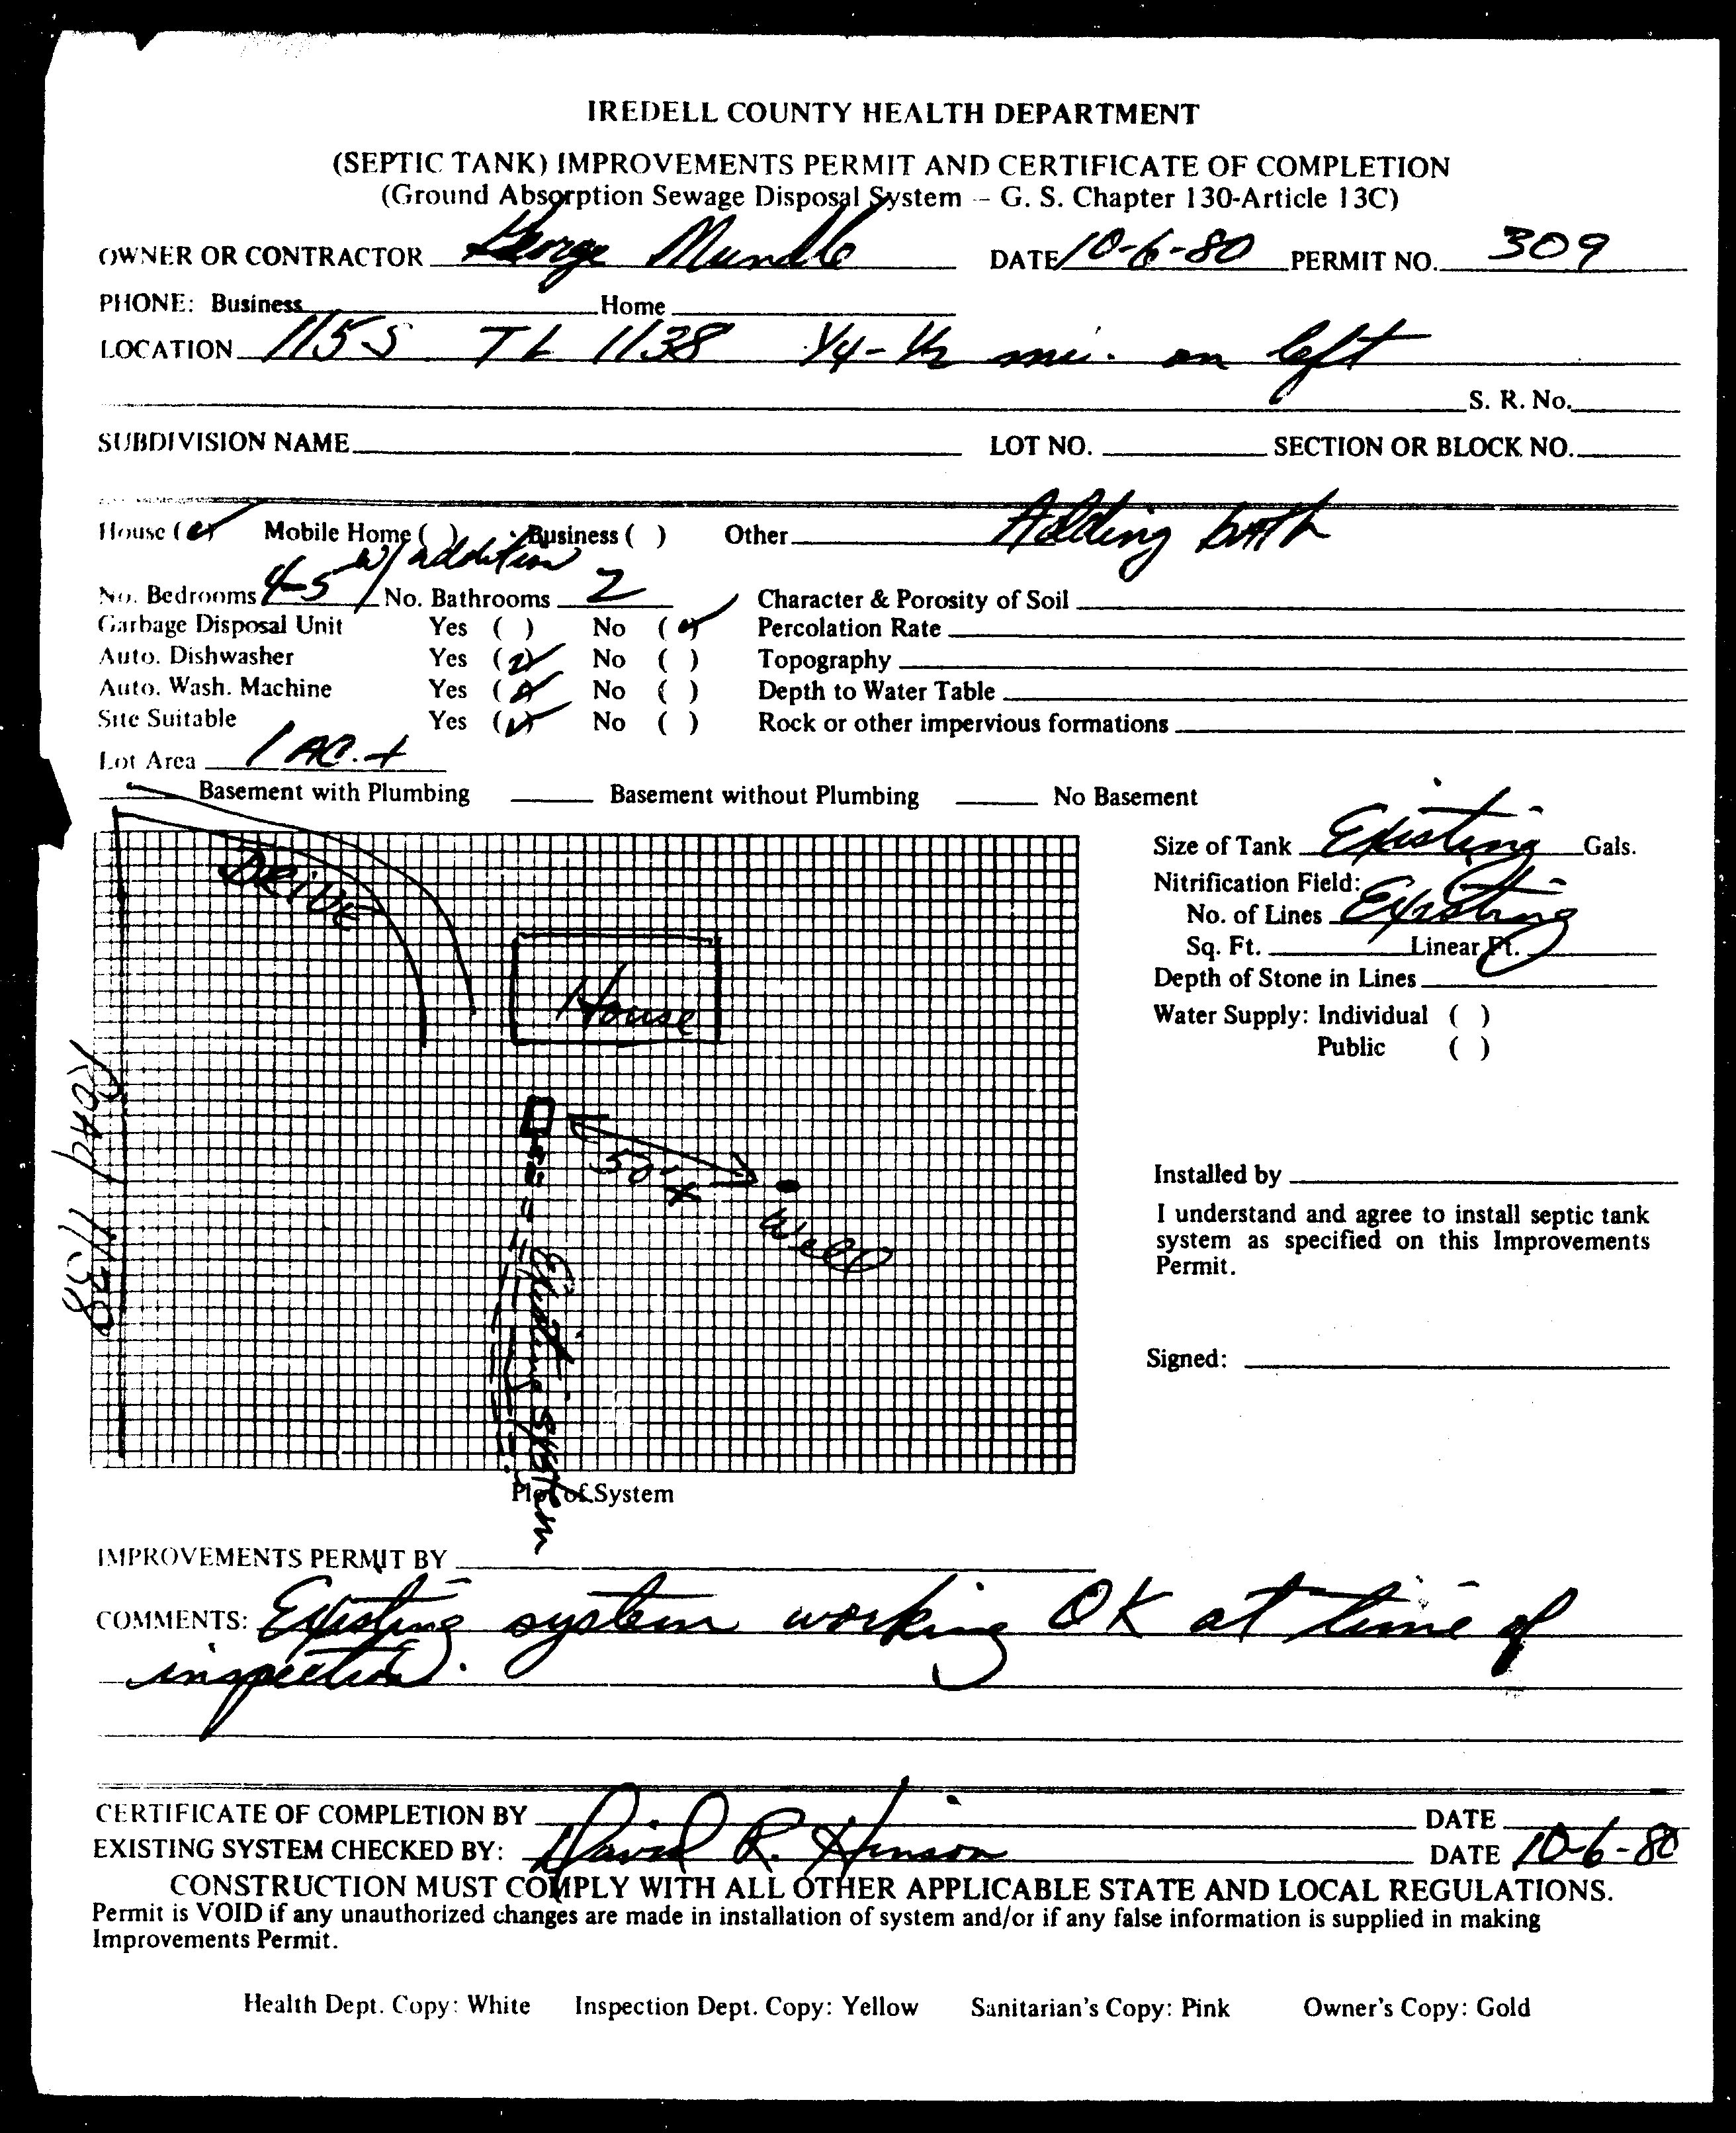 IREDELL COUNTY HEALTH DEPARTMENT
(SEPTIC TANK) IMPROVEMENTS PERMIT AND CERTIFICATE OF COMPLETION
(Ground Absorption Sewage Disposal System -- G. S. Chapter 130-Article 13C)
OWNER OR CONTRACTOR George DATE 10-6-80 PERMIT NO. 309
PHONE: Business Home
LOCATION 115 S TL 1138 1/4-1/2 mi. on left
S. R. No.
SUBDIVISION NAME LOT NO. SECTION OR BLOCK NO.
House (✓) Mobile Home ( ) Business ( ) Other Adding bath
w/ addition
No. Bedrooms 4-5 No. Bathrooms 2 Character & Porosity of Soil
Garbage Disposal Unit Yes ( ) No (✓) Percolation Rate
Auto. Dishwasher Yes (✓) No ( ) Topography
Auto. Wash. Machine Yes (✓) No ( ) Depth to Water Table
Site Suitable Yes (✓) No ( ) Rock or other impervious formations
Lot Area 1 AC. +
Basement with Plumbing Basement without Plumbing No Basement
DRIVE
House
50' ±
Well
Existing System
Road 1138
Plot of System
Size of Tank Existing Gals.
Nitrification Field:
No. of Lines Existing
Sq. Ft. Linear Ft.
Depth of Stone in Lines
Water Supply: Individual ( )
Public ( )
Installed by
I understand and agree to install septic tank
system as specified on this Improvements
Permit.
Signed:
IMPROVEMENTS PERMIT BY
COMMENTS: Existing system working OK at time of
inspection.
CERTIFICATE OF COMPLETION BY DATE
EXISTING SYSTEM CHECKED BY: David R. Hinson DATE 10-6-80
CONSTRUCTION MUST COMPLY WITH ALL OTHER APPLICABLE STATE AND LOCAL REGULATIONS.
Permit is VOID if any unauthorized changes are made in installation of system and/or if any false information is supplied in making
Improvements Permit.
Health Dept. Copy: White Inspection Dept. Copy: Yellow Sanitarian's Copy: Pink Owner's Copy: Gold